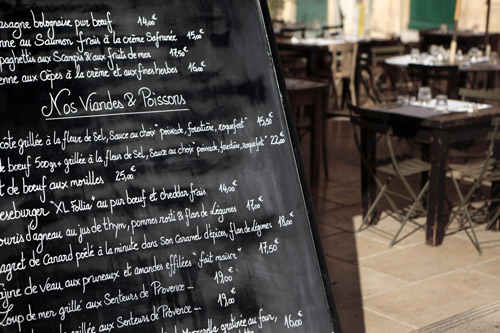 asagne bolognaise pur bœuf 14,00€
enne au Saumon frais à la crème Safranée 15,00€
paghettis aux Scampis & aux fruits de mer 17,50€
enne aux Cèpes à la crème et aux fines herbes 16,00€
Nos Viandes & Poissons
côte grillée à la fleur de Sel, Sauce au choix "poivrade, forestière, roquefort" 15,50€
de bœuf 500gr+ grillée à la fleur de Sel, Sauce au choix "poivrade, forestière, roquefort" 22,00€
t de bœuf aux morilles 25,00€
eeseburger "XL Follia" au pur bœuf et cheddar frais 14,00€
ouris d'agneau au jus de thym, pommes rosti & flan de légumes 17,00€
agret de Canard poêlé à la minute dans Son Caramel d'épices, flan de légumes 18,00€
jine de veau, aux pruneaux et amandes effilées "fait maison" 17,50€
Loup de mer grillé aux Senteurs de Provence ... 19,00€
grillée aux Senteurs de Provence ... 19,00€
gratinée au four, 16,00€